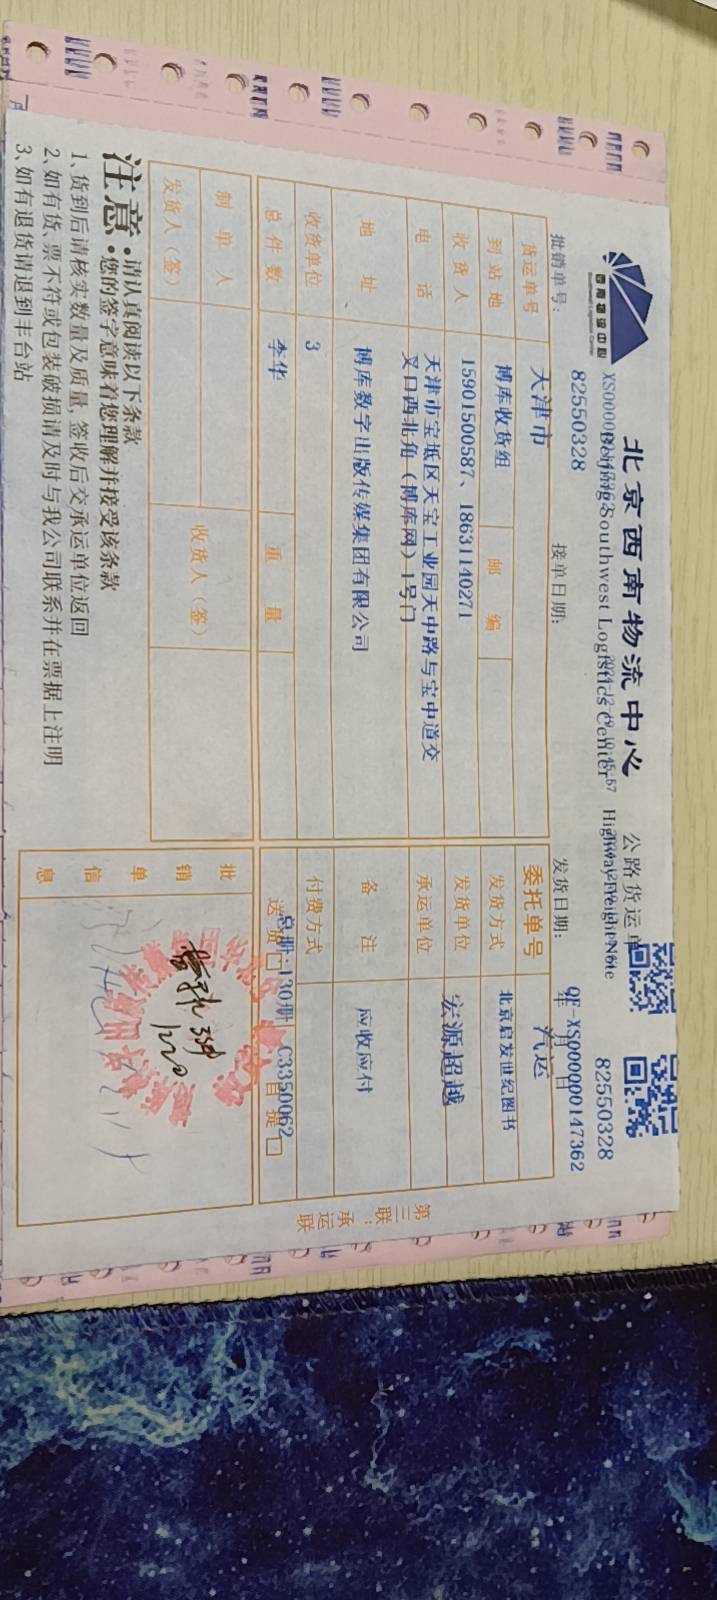 西南物流中心
北京西南物流中心 公路货运单
Beijing Southwest Logistics Center Highway Freight Note
82550328
82550328
批销单号:
接单日期:
发货日期: 年 月 日
QF-XS000000147362
货运单号
委托单号
天津市
汽运
到站地 博库收货组 邮编
发货方式 北京启发世纪图书
收货人 15901500587、18631140271
发货单位 宏源超越
电话 天津市宝坻区天宝工业园天中路与宝中道交
叉口西北角(博库网)1号门
承运单位
地址 博库数字出版传媒集团有限公司
备注 应收应付
收货单位 3
付费方式
总件数 李华 重量
总册:130册 C3350062
送货□ 自提□
制单人
发货人(签)
收货人(签)
批销单信息
第三联:承运联
注意:
·请认真阅读以下条款
·您的签字意味着您理解并接受该条款
1、货到后请核实数量及质量,签收后交承运单位返回
2、如有货、票不符或包装破损请及时与我公司联系并在票据上注明
3、如有退货请退到丰台站